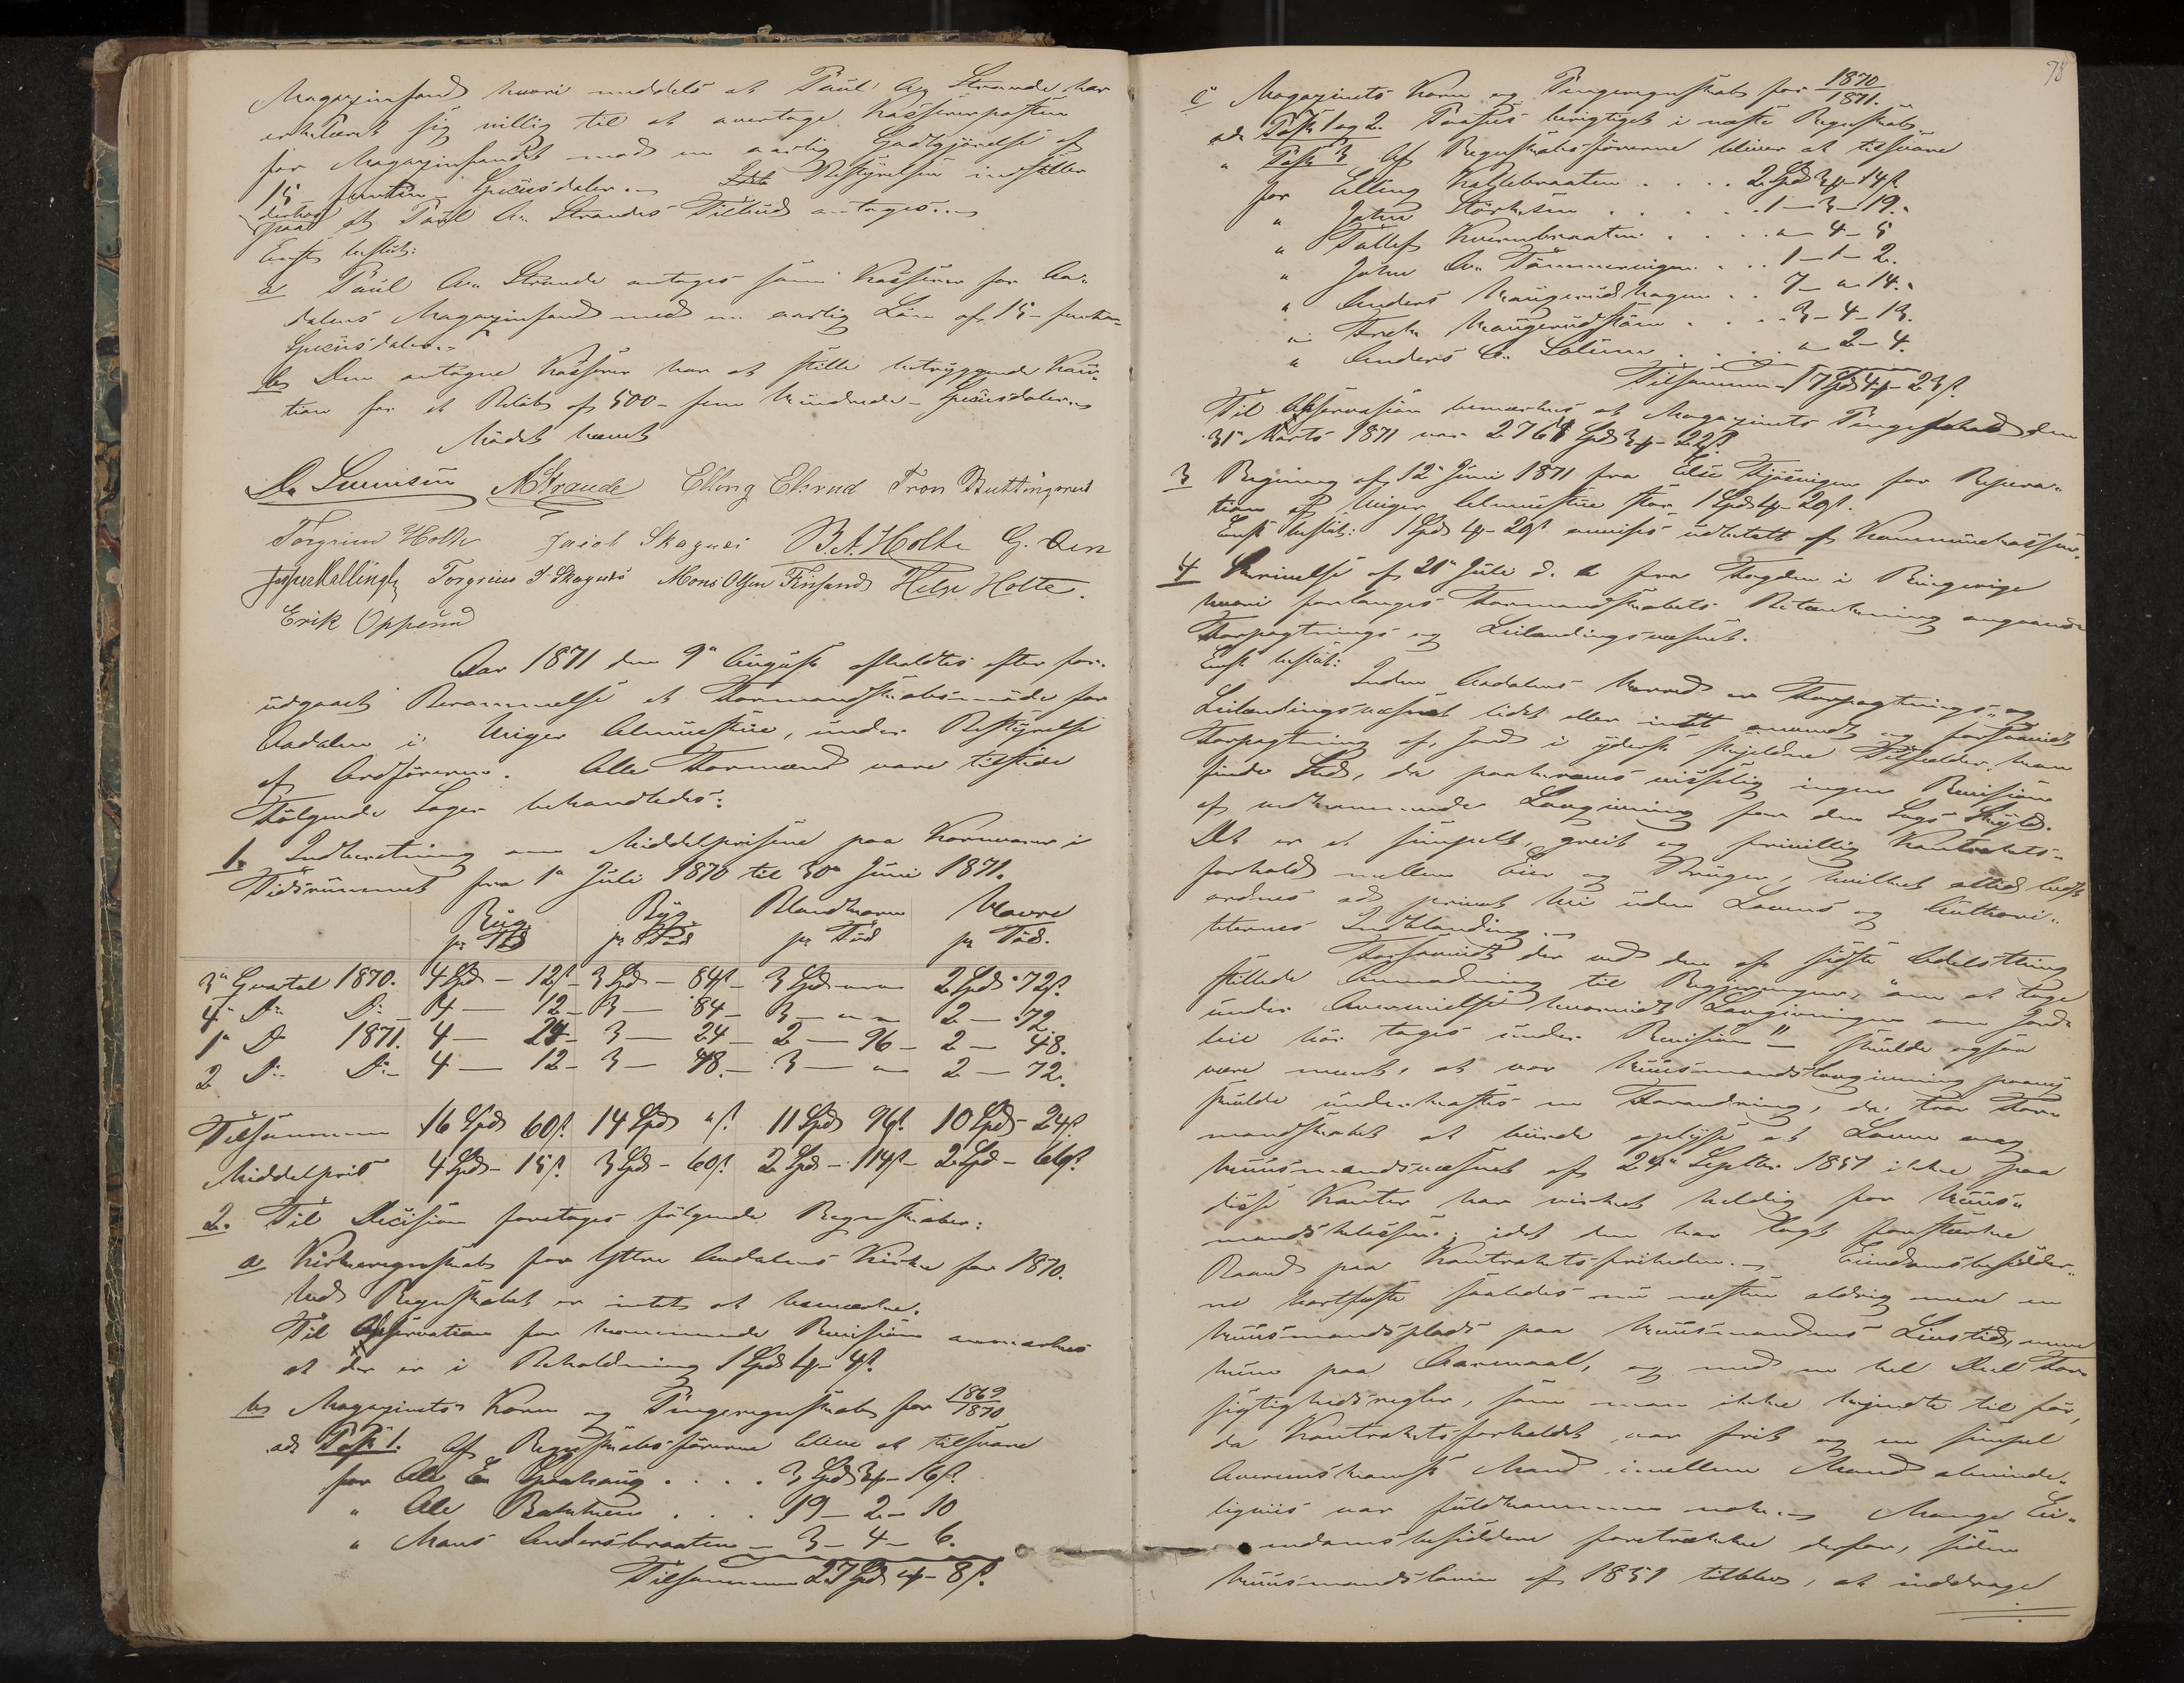 Magazinfond hvori meddeles at Paul An Strande har
erklæret sig villig til at overtage Kassererposten
for Magazinfondet mod en aarlig Godtgjörelse af
15 – femten – Speciesdaler. – Bestyrelsen indstiller
derhos
paa at Paul An. Strandes Tilbud antages. –
Enst. besluttet:
a Paul An. Strande antages som Kasserer for Aa-
dalens Magazinfond med en aarlig Lön af 15 – femten
Speciesdaler. –
b Den antagne Kasserer har at stille betryggende Kau-
tion for et Belöb af 500 – fem hundrede – Speciesdaler. –
Mödet hævet
A Strande Elling Elsrud Tron Buttingsrud
Torgrim Holte Jacob Skagnæs B. A. Holte G.
Torgrim J. Skagnæs Mons Olsen Finsand Helge Holte.
Erik Oppsund
Aar 1871 den 9de August afholdtes efter for-
udgaaet Berammelse et Formandskabsmöde for
Aadalen i Ringer Almueskue, under Bestyrelse
af Ordföreren. Alle Formænd vare tilstede
Fölgende Sager behandledes:
1. Indberetning om Middelpriserne paa Kornvarer i
Tidsrummet fra 1ste Juli 1870 til 30te Juni 1871.
Rug Byg Blandkorn Havre
pr Td pr Töd pr Töd pr Töd.
3de Qvartal 1870. 4 Spd – 12 s. 3 Spd – 84 s. – 3 Spd – „ – 2 Spd. 72 s.
4de Do Do 4 – 12 – 3 – 84 – 3 – „ – 2 – 72.
1ste Do 1871. 4 – 24 – 3 – 24 – 2 – 96 – 2 – 48.
2 Do Do 4 – 12 – 3 – 48. – 3 – „ 2 – 72.
Tilsammen 16 Spd 60 s. 14 Spd „ s. 11 Spd 96 s. 10 Spd – 24 s.
Middelpris 4 Spd – 15 s. 3 Spd – 60 s. 2 Spd – 114 s. – 2 Spd – 66 s.
2. Til Decision foretoges fölgende Regnskaber:
a Kirkeregnskab for Ytre Aadalens Kirke for 1870.
Ved Regnskabet er intet at bemærke.
Til Observation for kommende Revision anmærkes
at der er i Beholdning 1 Spd 4 – 4 s.
b Magazinets Korn og Pengeregnskab for 1869/1870
ad Post 1. Af Regnskabsförerne bliver at tilsvare
for Ole E. . . . . 3 Spd 3 – 16 s.
„ Ole . . . 19 – 2 – 10
„ Mons Andersbraaten – 3 – 4 – 6.
Tilsammen 27 Spd 4 – 8 s.
78
c Magazinets Korn og Pengeregnskab for 1870/1871.
ad Post 1 og 2. Paasees berigtiget i næste Regnskab.
„ Post 3 Af Regnskabsförerne bliver at tilsvare
for Elling Kolbebraaten . . . . 2 Spd 3 – 14 s.
„ John Störkersen . . . . . . 1 – 3 – 19. „
„ Tollef Kvernbraaten . . . . „ – 4 – 5
„ John An. Tömmervigen . . . 1 – 1 – 2.
„ Anders Haugerudhagen . . 7 – „ – 14. „
„ Haugerudsöen . . . . 3 – 4 – 13.
„ Anders A. . . . . „ – 2 – 4.
Tilsammen 17 Spd 4 – 23 s.
Til Observasion bemærkes at Magazinets Pengefond den
31te Marts 1871 var 2768 Spd 3 – 22 s.
3 Regning af 12te Juni 1871 fra Else for Repera-
tion af Ringer Almueskue stor 1 Spd 4 – 20 s.
Enst. beslut: 1 Spd 4 – 20 s. anvises udbetalt af Kommunekassen.
4 Skrivelse af 21de Juli d. A. fra Fogden i Ringerige
hvori forlanges Formandskabets Betænkning angaaende
Forpagtnings og Leilændingsvæsenet.
Enst. beslut:
Inden Aadalens Herred er Forpagtnings- og
Leilendingsvæsenet lidet eller intet anvendt og forsaavidt
Forpagtning af Jord i yderst skjeldne Tilfælder kan
finde Sted, da paakræves visselig ingen Revision
af vedkommende Lovgivning for den Sags Skyld.
Det er et simpelt, greit og frivillig Kontrakts-
forhold mellem Eier og Bruger, hvilket altid bedst
ordnes ad privat Vei uden Lovens og Authori-
teternes Indblanding. –
Forsaavidt der ved den af sidste Odelsthing
stillede Anmodning til Regjeringen, „om at tage
under Overveielse hvorvidt Lovgivningen om Jord-
leie bör tages under Revision" – skulde ogsaa
være ment, at vor Huusmandslovgivning paany
skulde underkastes en Forandring, da tror For-
mandskabet at burde oplyse at Loven ang
Huusmandsvæsenet af 24de Septbr. 1851 ikke paa
disse Kanter har virket heldig for Huus-
mandsklassen; idet den har lagt forstærke
Baand paa Kontraktsfriheden. – Eiendomsbesidder-
ne bortfæste saaledes nu næsten aldrig mere en
Huusmandsplads paa Huusmandens Livstid, men
kun paa Aaremaal, og med en hel Del For-
sigtighedsregler, som man ikke kjendte til för,
da Kontraktsforholdet var frit og en simpel
Overenskomst Mand imellem Mand alminde-
ligviis var fuldkommen nok. – Mange Ei-
endomsbesiddere foretrække derfor, siden
Huusmandsloven af 1851 tilblev, at inddrage